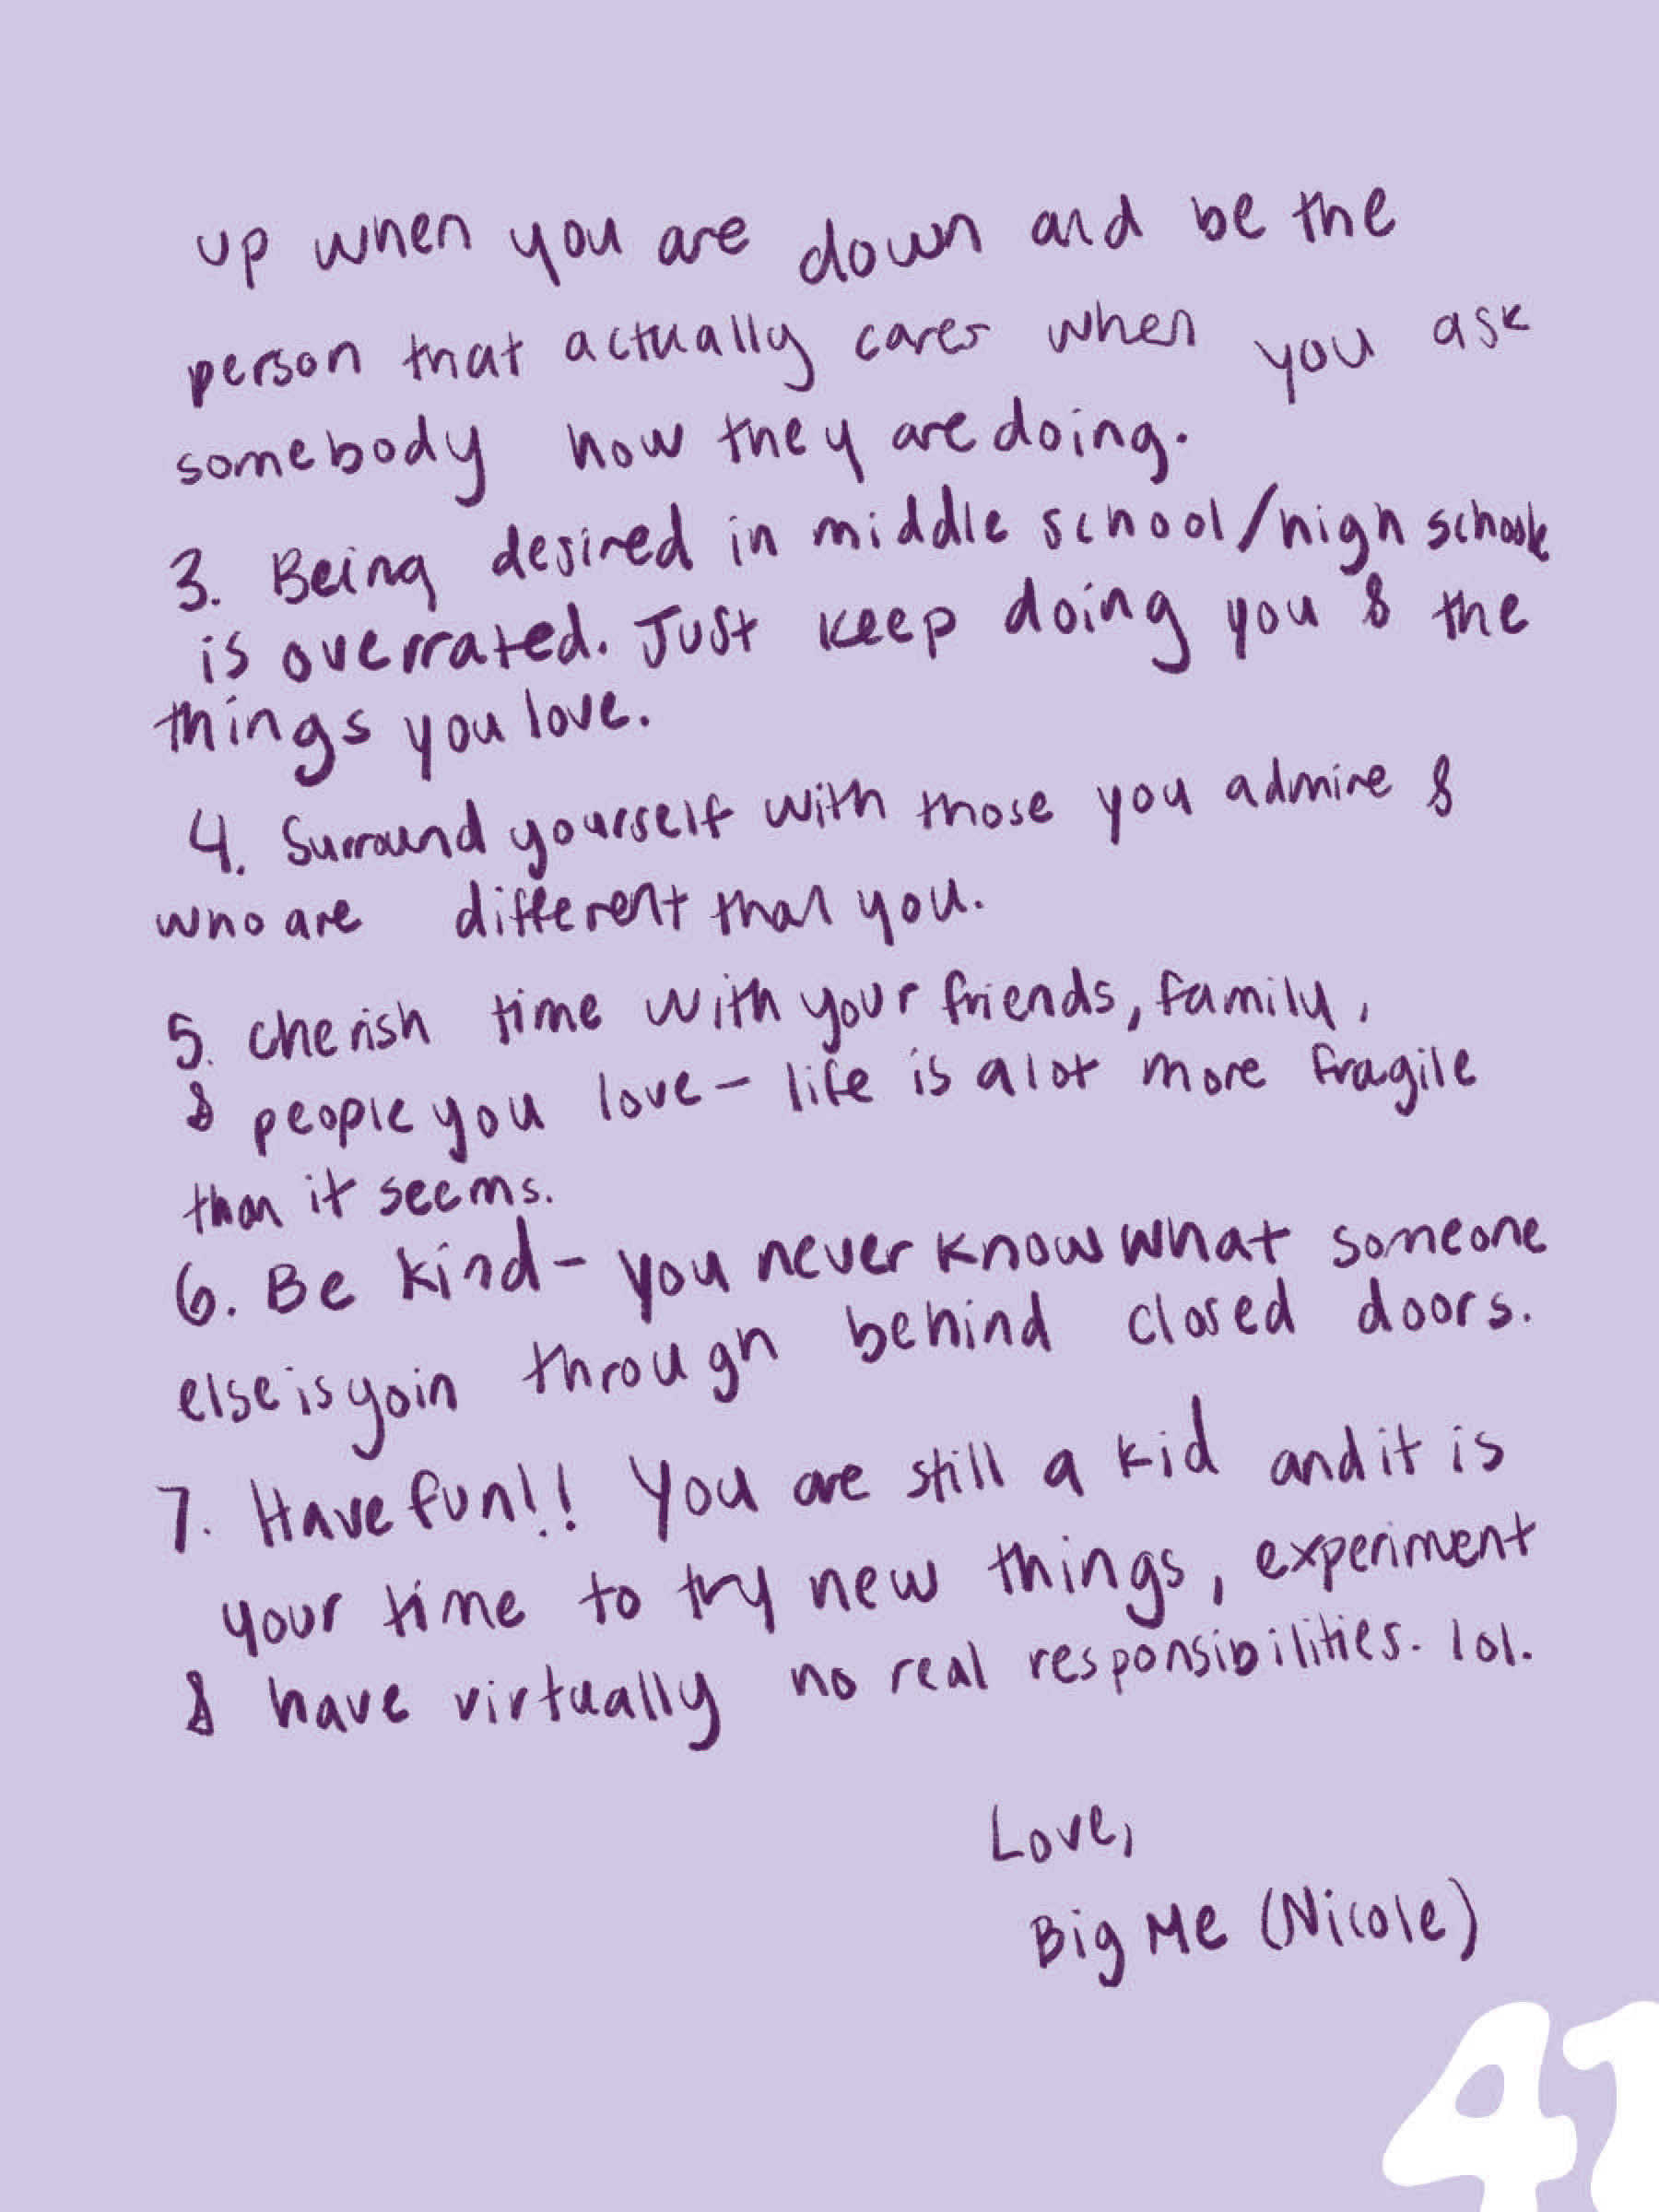 up when you are down and be the
person that actually cares when you ask
somebody how they are doing.
3. Being desired in middle school/high school
is overrated. Just keep doing you & the
things you love.
4. Surround yourself with those you admire &
who are different than you.
5. Cherish time with your friends, family,
& people you love - life is a lot more fragile
than it seems.
6. Be kind - you never know what someone
else is goin through behind closed doors.
7. Have fun!! You are still a kid and it is
your time to try new things, experiment
& have virtually no real responsibilities. lol.
Love,
Big Me (Nicole)
41